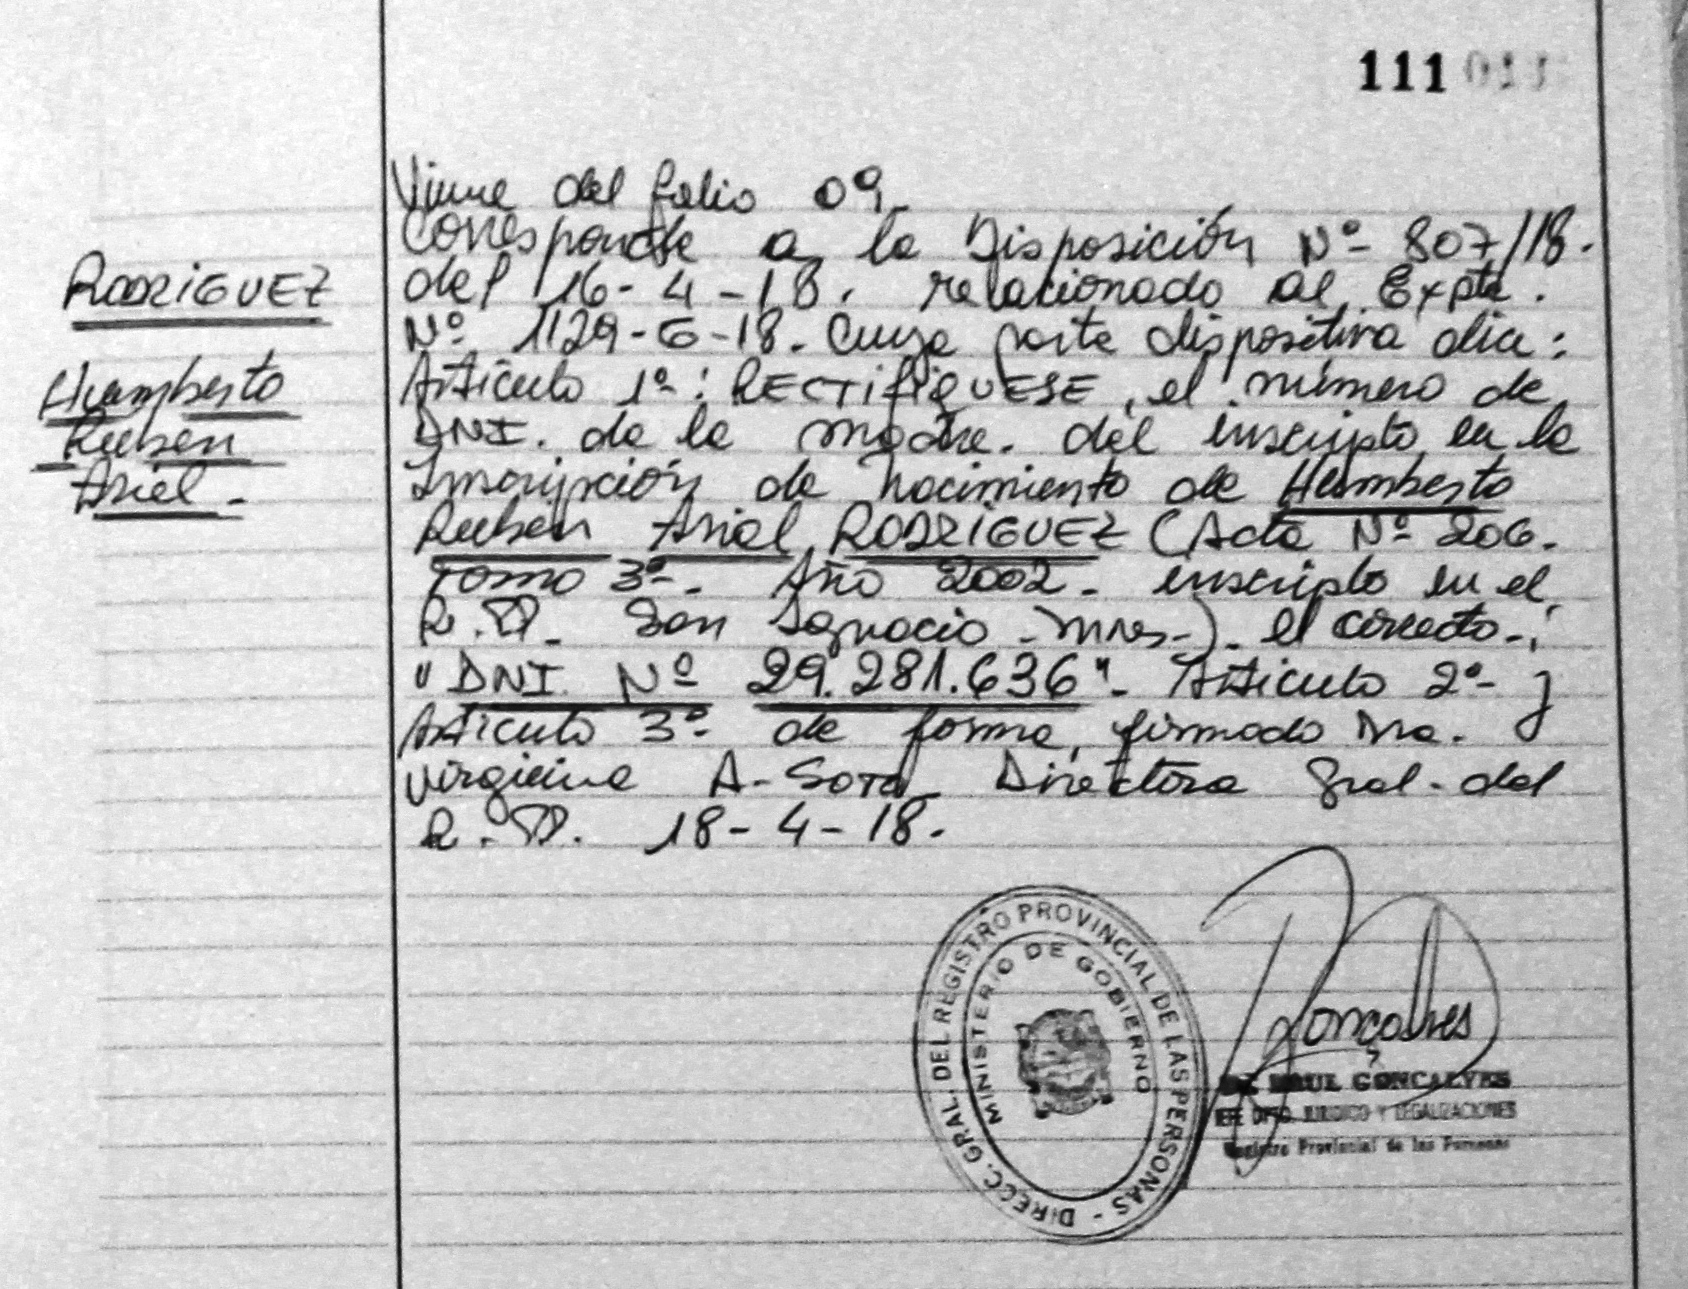 111 011
Viene del folio 09.
Corresponde a la Disposición Nº- 807/18.
del 16-4-18. relacionado al Expte.
Nº 1129-G-18. Cuya parte dispositiva dice:
Artículo 1º: RECTIFIQUESE, el número de
DNI. de la madre. del inscripto en la
Inscripción de nacimiento de Humberto
Ruben Ariel RODRIGUEZ (Acta Nº 206.
Tomo 3º-. Año 2002. inscripto en el
R.P. San Ignacio -Mnes-). el correcto.:
"DNI. Nº 29.281.636". Artículo 2º- y
Artículo 3º- de forma, firmado Dra.
Virginia A. Soto Directora Gral. del
R.P. 18-4-18.
RODRIGUEZ
Humberto
Ruben
Ariel-
DIRECC. GRAL. DEL REGISTRO PROVINCIAL DE LAS PERSONAS -
MINISTERIO DE GOBIERNO
Goncalves
RAUL GONCALVES
JEFE DPTO. JURIDICO Y LEGALIZACIONES
Registro Provincial de las Personas